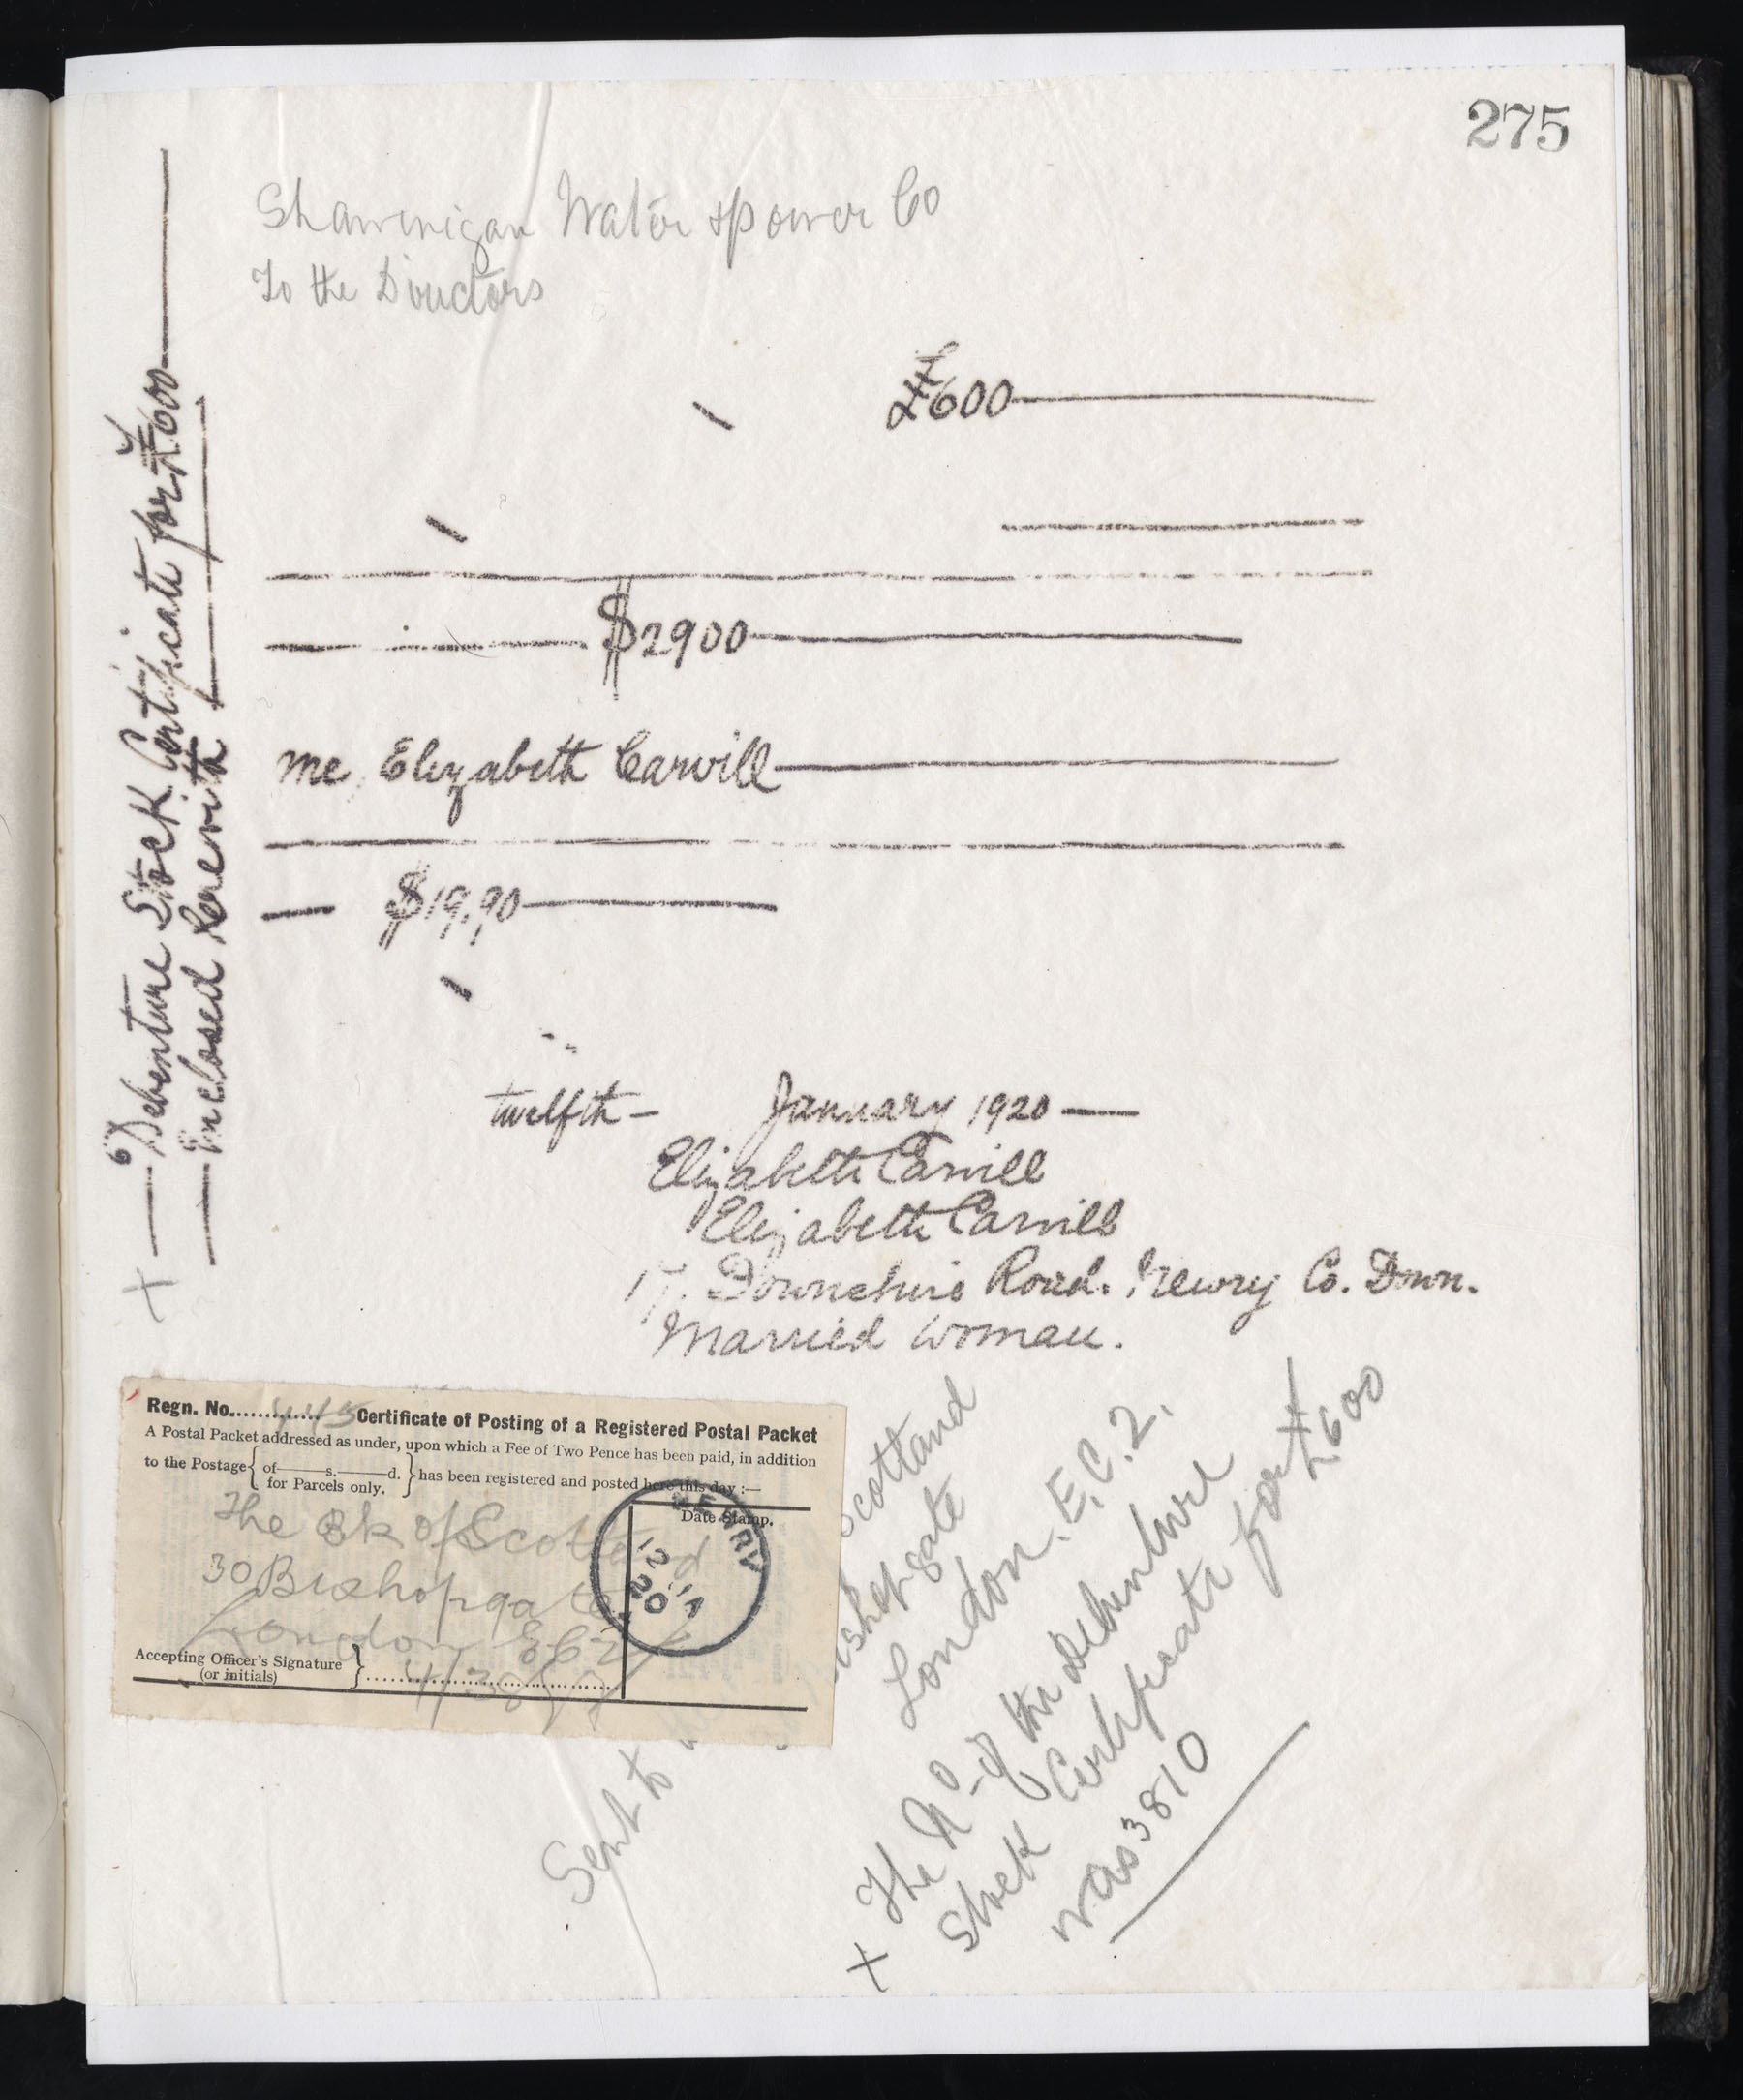 275
Shawinigan Water & Power Co
To the Directors
£600
$2900
me, Elizabeth Carvill
$19,90
twelfth — January 1920 —
Elizabeth Carvill
Elizabeth Carvill
17. Downshire Road. Newry Co. Down.
Married Woman.
X — Debenture Stock Certificate for £600
— Enclosed herewith
Regn. No. 445 Certificate of Posting of a Registered Postal Packet
A Postal Packet addressed as under, upon which a Fee of Two Pence has been paid, in addition
to the Postage { of — s. — d. } has been registered and posted here this day :—
for Parcels only.
Date Stamp.
NEWRY
12 JA
20
The Bk of Scotland
30 Bishopgate
London EC2
Accepting Officer's Signature }
(or initials)
Sent to
Scotland
London. E.C.2.
X The No of the debenture
Stock Certificate for £600
was 3810